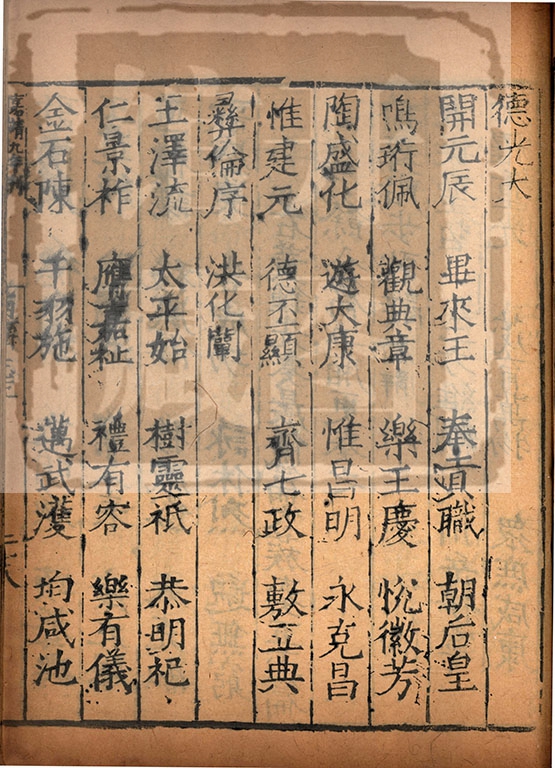 德光大
開元辰　畢來王　奉貢職　朝后皇
鳴珩佩　觀典章　樂王慶　悅徽芳
陶盛化　遊大康　惟昌明　永克昌
惟建元　德丕顯　齊七政　敷五典
彝倫序　洪化闡
王澤流　太平始　樹靈祇　恭明祀
仁景祚　膺嘉祉　禮有容　樂有儀
金石陳　干羽施　邁武濩　均咸池